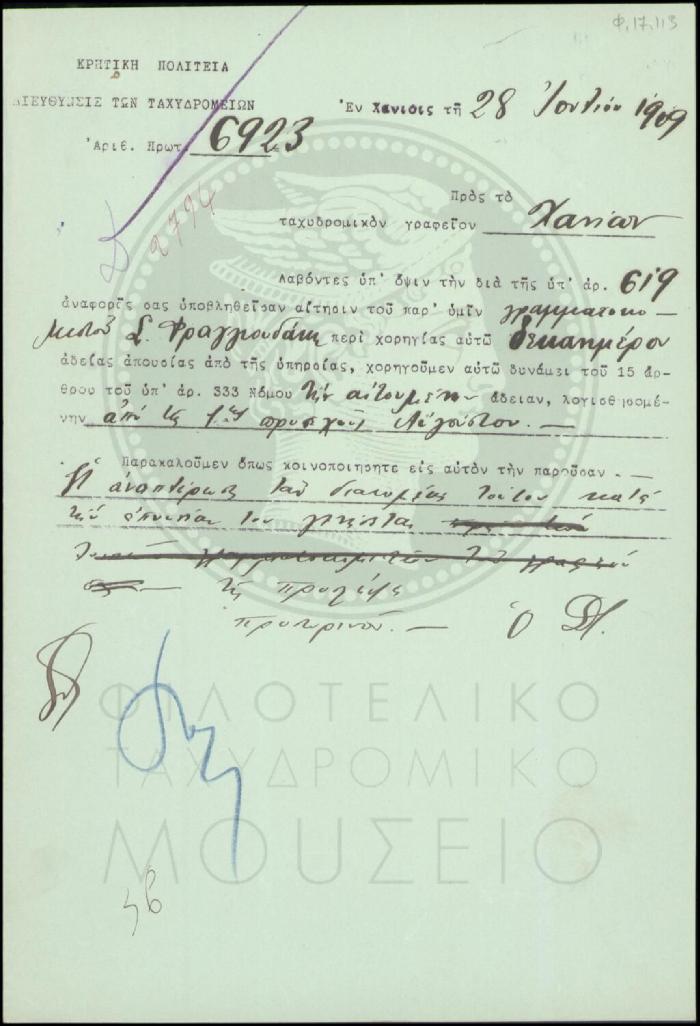 Φ.17.113
ΚΡΗΤΙΚΗ ΠΟΛΙΤΕΙΑ
ΔΙΕΥΘΥΝΣΙΣ ΤΩΝ ΤΑΧΥΔΡΟΜΕΙΩΝ
Ἐν Χανίοις τῇ 28 Ἰουλίου 1909
Ἀριθ. Πρωτ. 6923
2794
Πρὸς τὸ
ταχυδρομικὸν γραφεῖον Χανίων
Λαβόντες ὑπ' ὄψιν τὴν διὰ τῆς ὑπ' ἀρ. 619
ἀναφορᾶς σας ὑποβληθεῖσαν αἴτησιν τοῦ παρ' ὑμῖν γραμματοκο-
μιστοῦ Σ. Φραγκιουδάκη περὶ χορηγίας αὐτῷ δεκαημέρου
ἀδείας ἀπουσίας ἀπὸ τῆς ὑπηρσίας, χορηγοῦμεν αὐτῷ δυνάμει τοῦ 15 ἄρ-
θρου τοῦ ὑπ' ἀρ. 333 Νόμου τὴν αἰτουμένην ἄδειαν, λογισθησομέ-
νην ἀπὸ τῆς 1ης προσεχοῦς Αὐγούστου. —
Παρακαλοῦμεν ὅπως κοινοποιήσητε εἰς αὐτὸν τὴν παροῦσαν . —
Ἡ ἀναπλήρωσις τοῦ διανομέως τούτου κατὰ
τὴν ἀπουσίαν του
τῆς
προσωρινοῦ. — Ὁ Δ.
ΦΙΛΟΤΕΛΙΚΟ
ΤΑΧΥΔΡΟΜΙΚΟ
ΜΟΥΣΕΙΟ